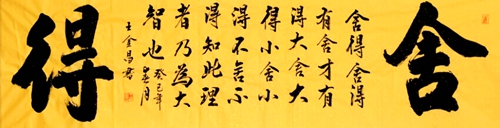 舍
舍得舍得
有舍才有
得大舍大
得小舍小
得不舍不
得知此理
者乃為大
智也
癸巳年
王金昌書
得